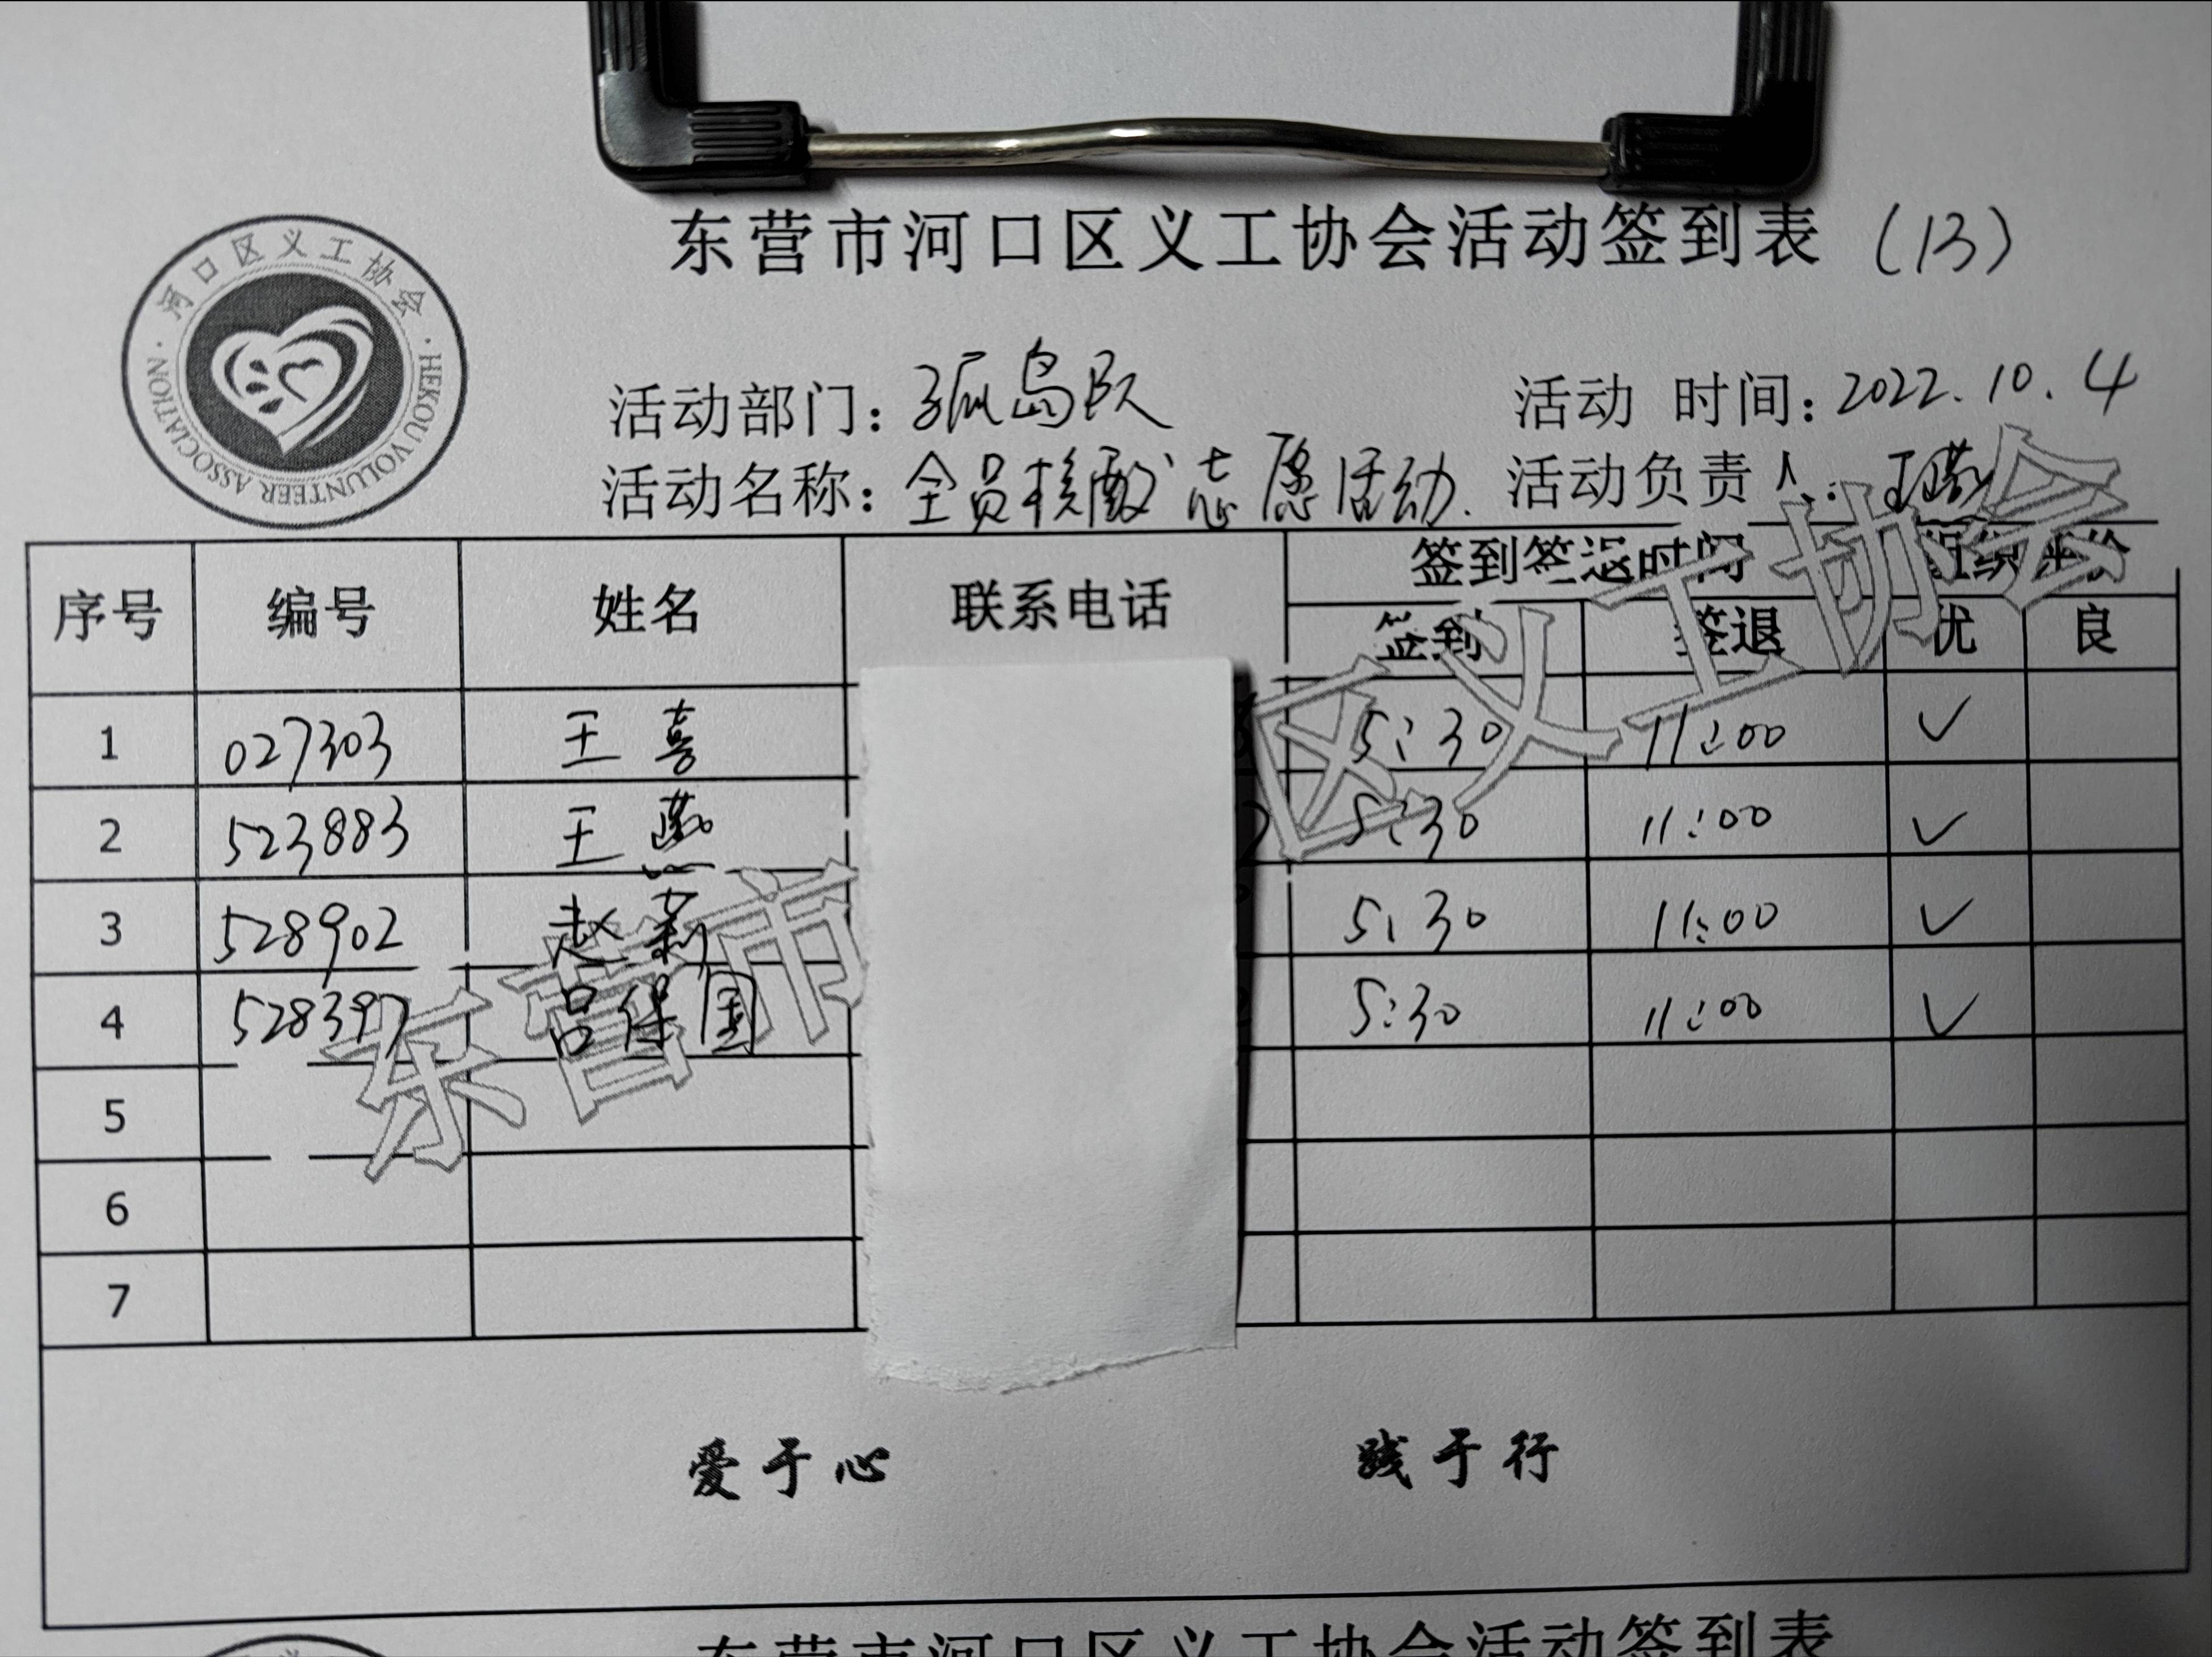 东营市河口区义工协会活动签到表 (13)
河口区义工协会
HEKOU VOLUNTEER ASSOCIATION
活动部门：孤岛队 活动 时间：2022.10.4
活动名称：全员核酸志愿活动. 活动负责人：王
序号 编号 姓名 联系电话 签到签退时间 组织评价
签到 签退 优 良
1 027303 王喜 5:30 11:00 ✓
2 523883 王燕 5:30 11:00 ✓
3 528902 赵莉 5:30 11:00 ✓
4 528397 吕保国 5:30 11:00 ✓
5
6
7
东营市 区义工协会
爱于心 践于行
东营市河口区义工协会活动签到表